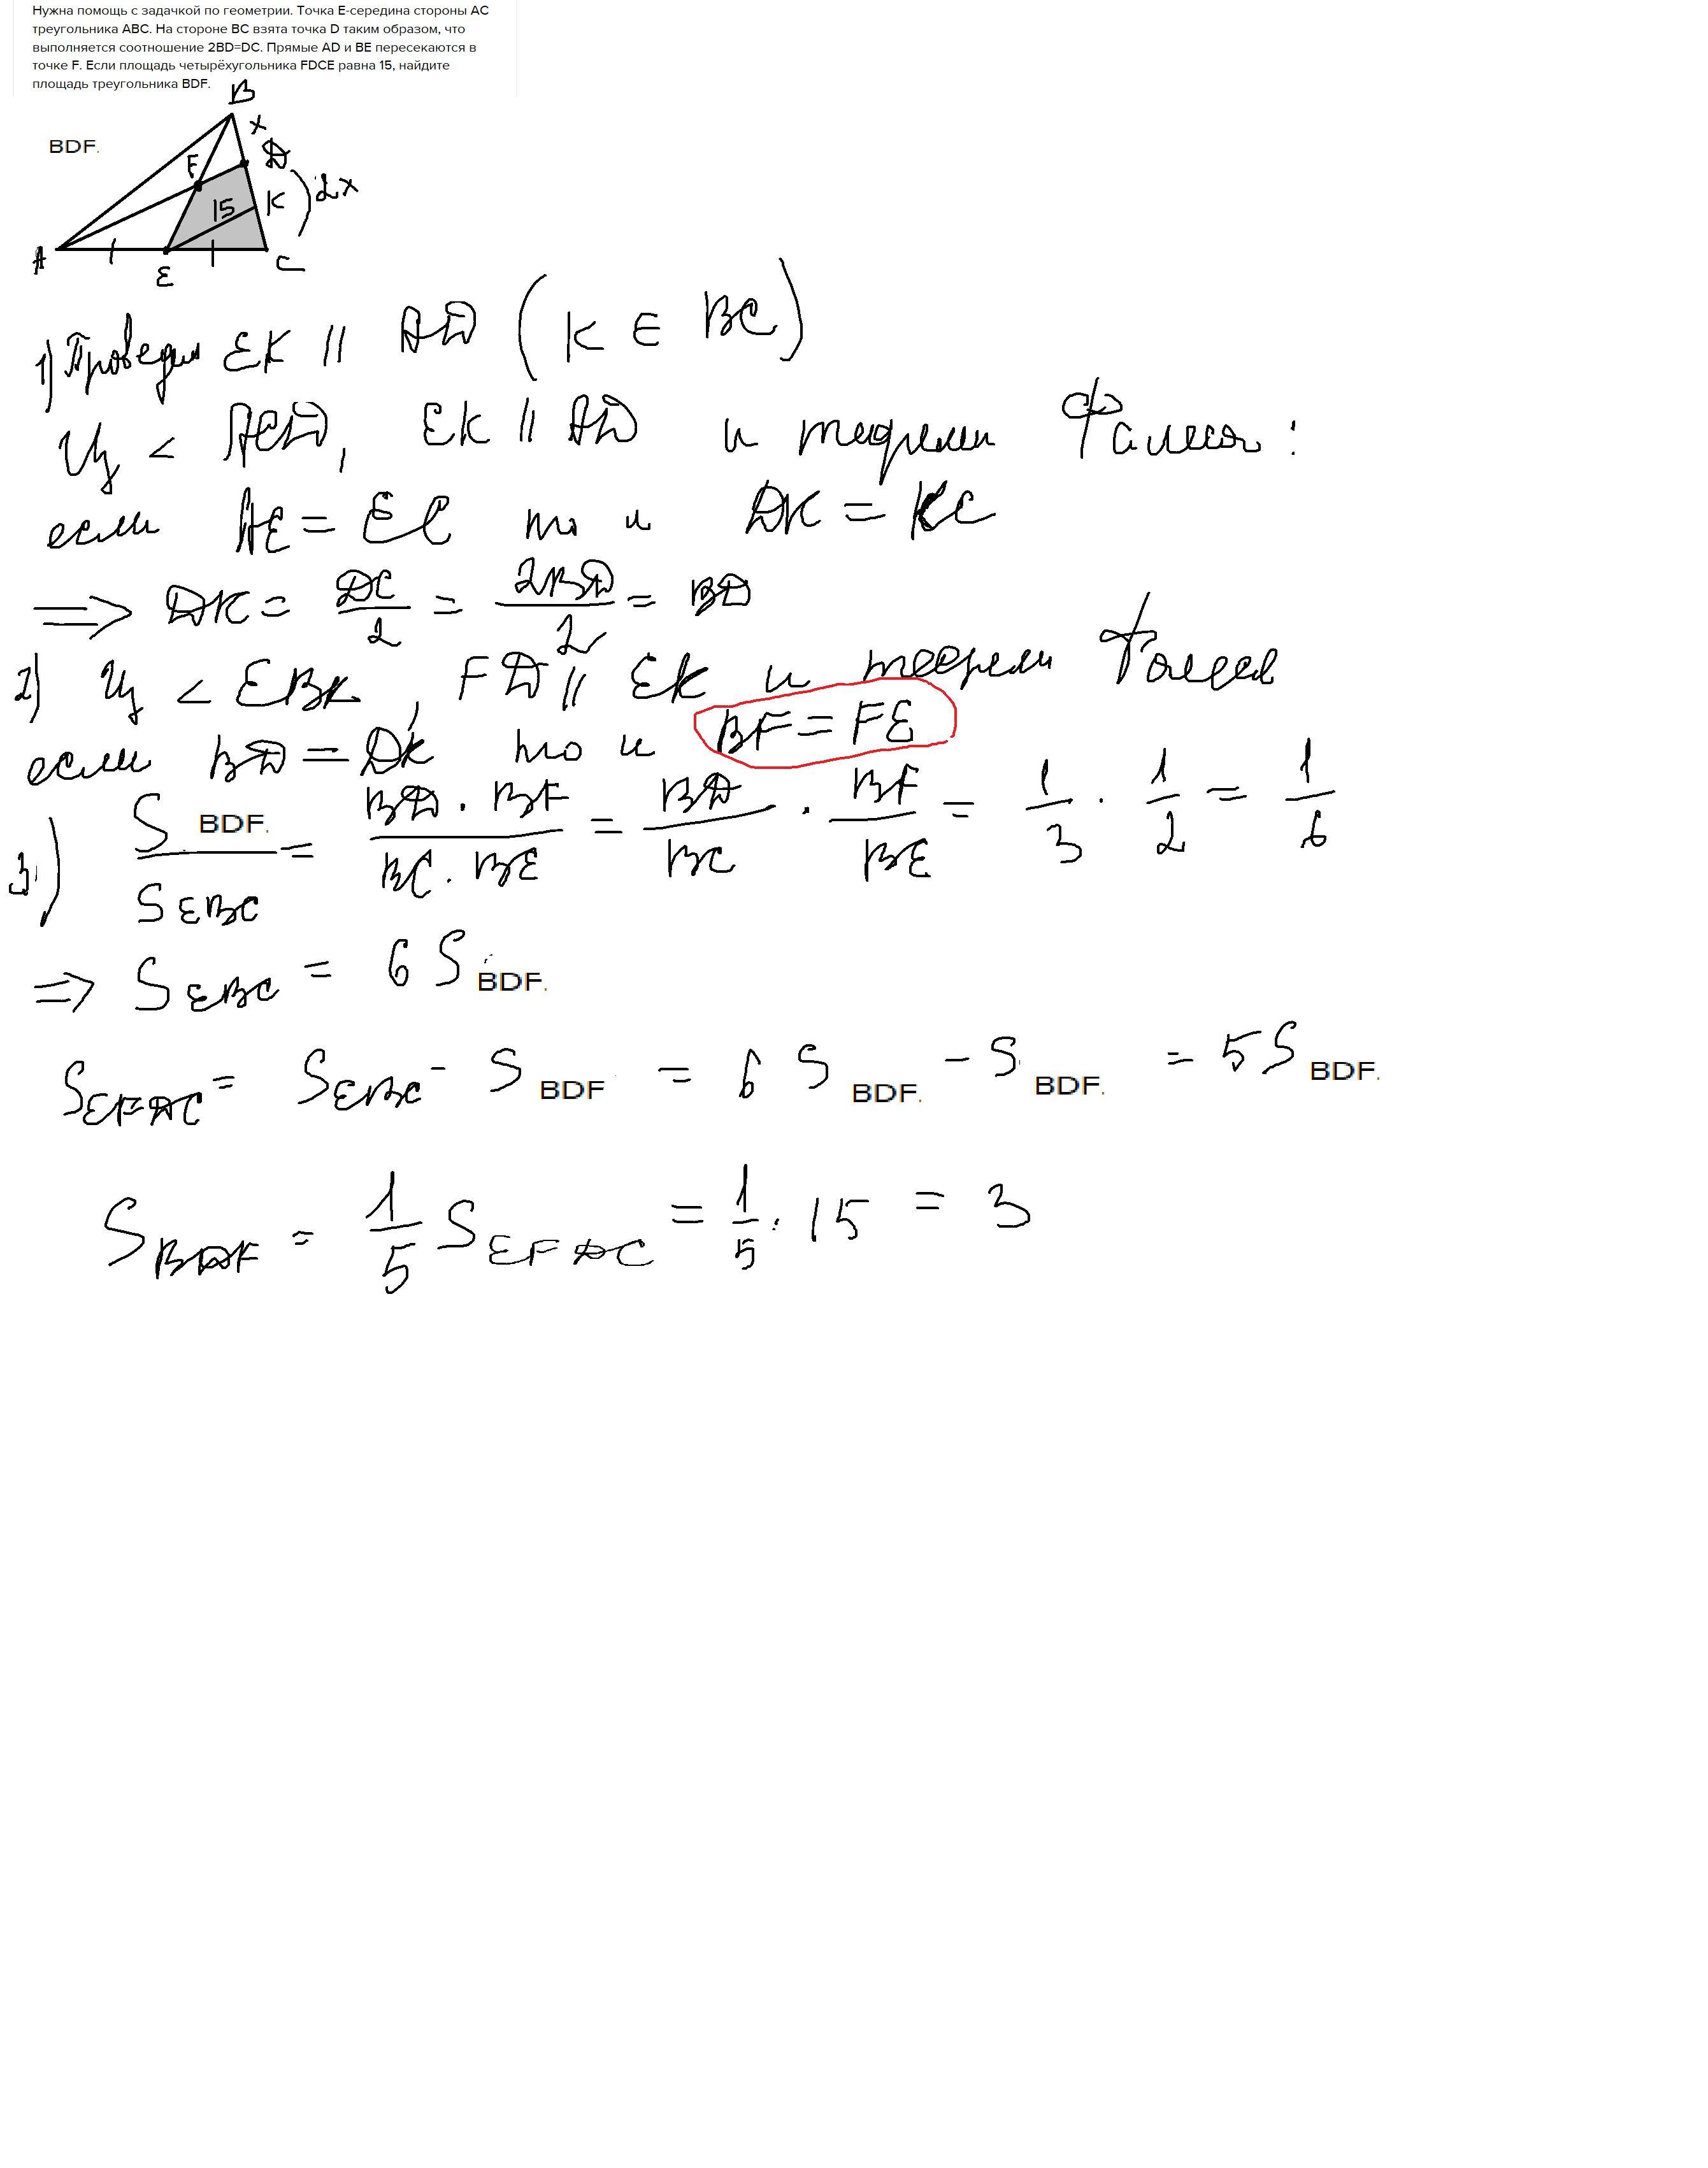 Нужна помощь с задачкой по геометрии. Точка E-середина стороны AC
треугольника ABC. На стороне BC взята точка D таким образом, что
выполняется соотношение 2BD=DC. Прямые AD и BE пересекаются в
точке F. Если площадь четырёхугольника FDCE равна 15, найдите
площадь треугольника BDF.
B
x
BDF.
F
D
15
K
2x
A
E
C
1) Проведем EK || AD (K ∈ BC)
Из < ACD, EK || AD и теоремы Фалеса:
если AE = EC то и DK = KC
=> DK = DC/2 = 2BD/2 = BD
2) Из < EBK, FD || EK и теоремы Фалеса
если BD = DK то и BF = FE
3) S BDF. / S EBC = BD · BF / BC · BE = BD/BC · BF/BE = 1/3 · 1/2 = 1/6
=> S EBC = 6 S BDF.
S EFDC = S EBC - S BDF = 6 S BDF. - S BDF. = 5 S BDF.
S BDF = 1/5 S EFDC = 1/5 · 15 = 3